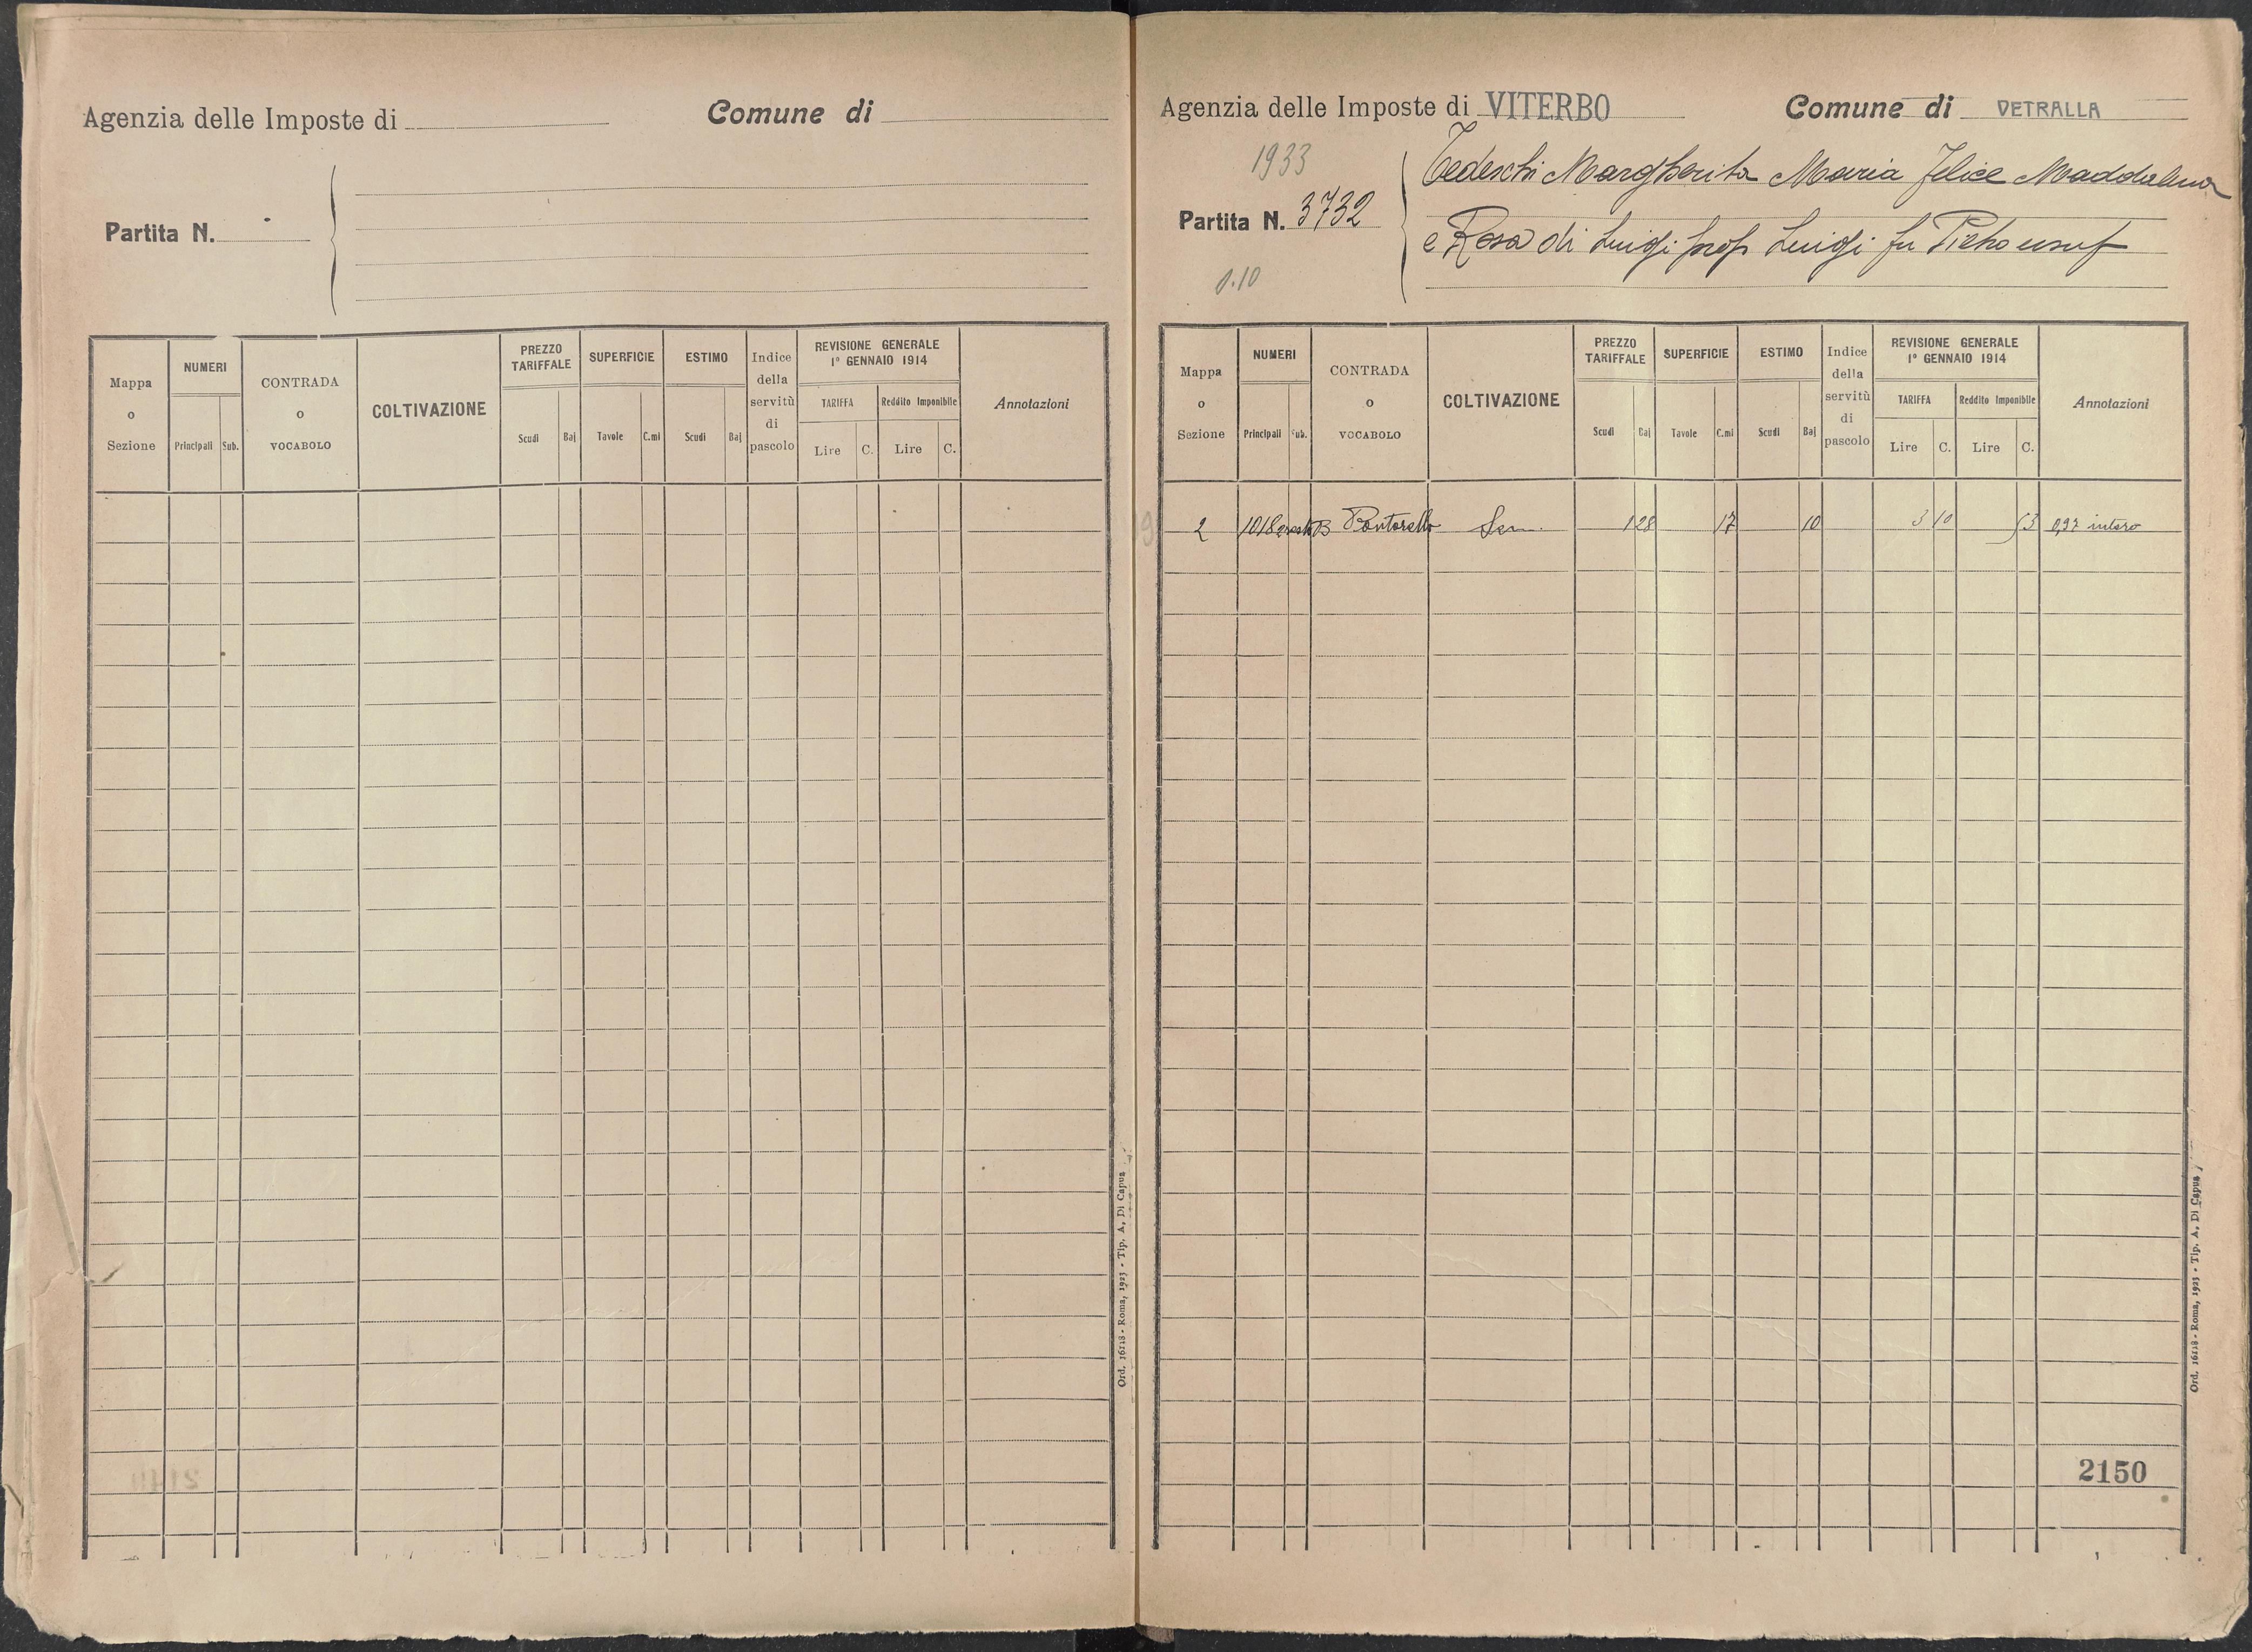 Agenzia delle Imposte di
Comune di
Partita N.
Mappa o Sezione
NUMERI
Principali
Sub.
CONTRADA o VOCABOLO
COLTIVAZIONE
PREZZO TARIFFALE
Scudi
Baj
SUPERFICIE
Tavole
C.mi
ESTIMO
Scudi
Baj
Indice della servitù di pascolo
REVISIONE GENERALE
1° GENNAIO 1914
TARIFFA
Reddito Imponibile
Lire
C.
Lire
C.
Annotazioni
Ord. 16118 - Roma, 1923 - Tip. A. Di Capua
Agenzia delle Imposte di VITERBO
Comune di VETRALLA
1933
Partita N. 3732
Tedeschi Margherita Maria Felice Maddalena
e Rosa di Luigi prop Luigi fu Pietro usuf
Mappa o Sezione
NUMERI
Principali
Sub.
CONTRADA o VOCABOLO
COLTIVAZIONE
PREZZO TARIFFALE
Scudi
Baj
SUPERFICIE
Tavole
C.mi
ESTIMO
Scudi
Baj
Indice della servitù di pascolo
REVISIONE GENERALE
1° GENNAIO 1914
TARIFFA
Reddito Imponibile
Lire
C.
Lire
C.
Annotazioni
2 1018 Sem. 1 28 17 10 3 10 53 0,97 intero
2150
Ord. 16118 - Roma, 1923 - Tip. A. Di Capua